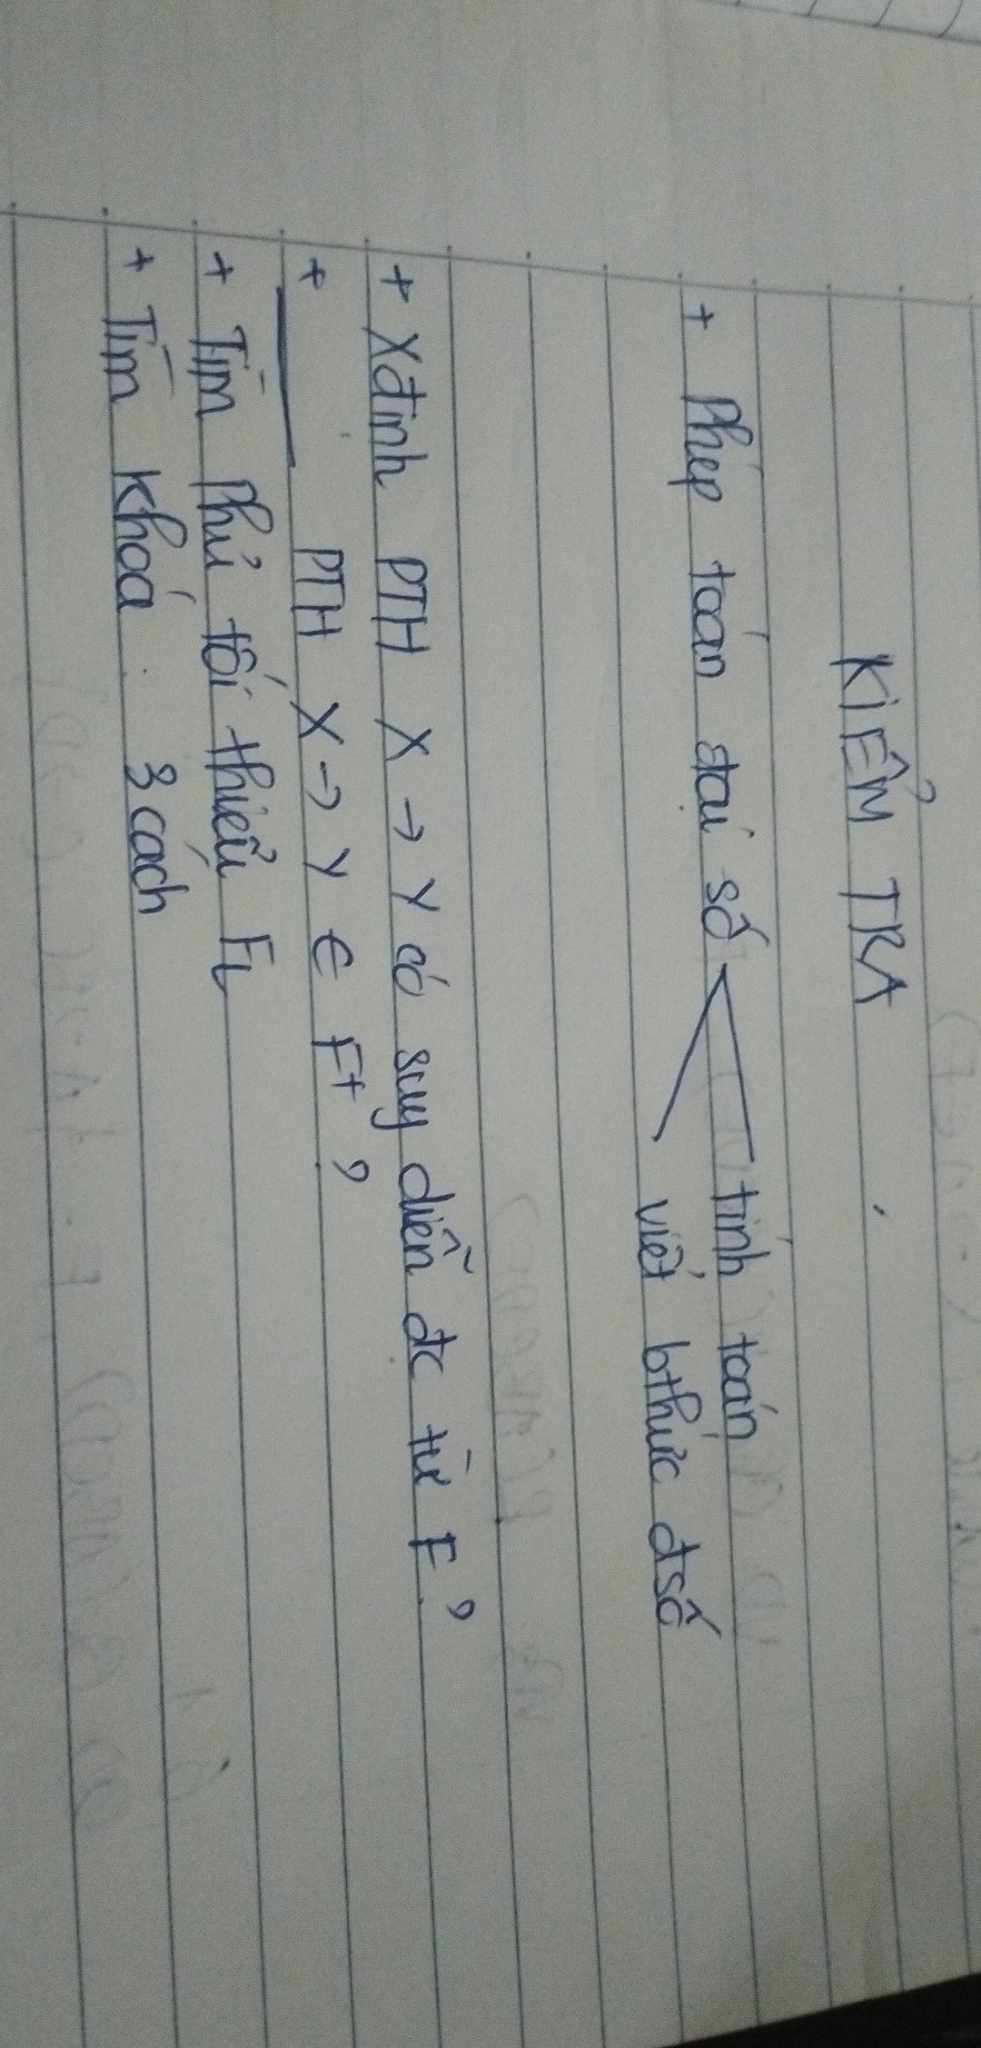 KIỂM TRA
+ Phép toán đại số tính toán
viết bthức đsố
+ Xđịnh PTH X → Y có suy diễn đc từ F?
+ ____ PTH X → Y ∈ F+ ?
+ Tìm Phủ tối thiểu FL
+ Tìm khoá. 3 cách